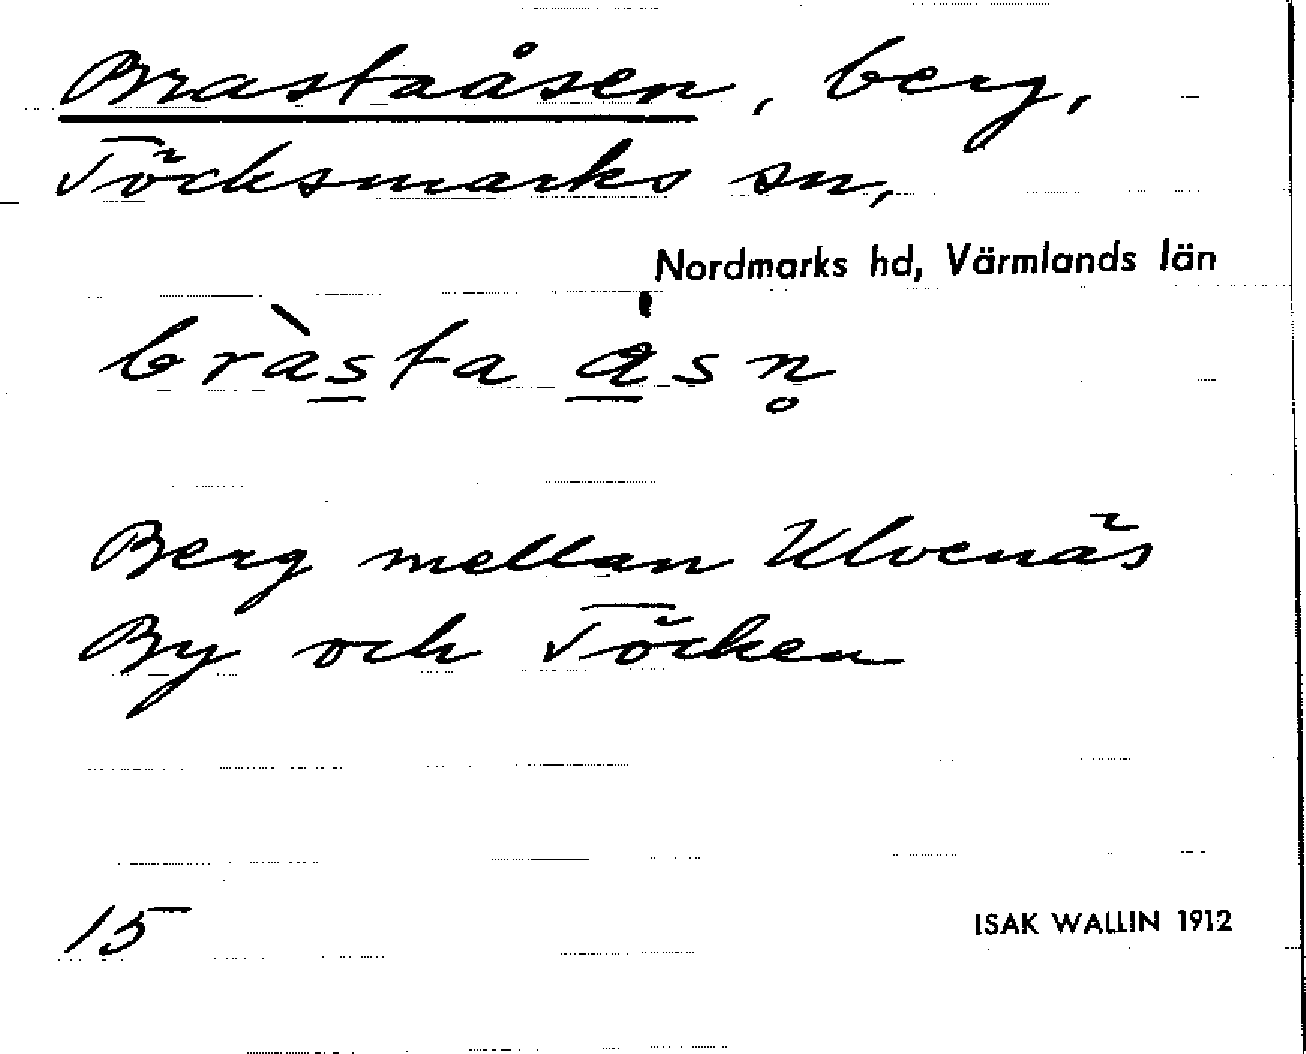 Brastaåsen, berg,
Töcksmarks sn,
Nordmarks hd, Värmlands län
bràsta åsn̥
Berg mellan Ulvenäs
By och Töcken
15
ISAK WALLIN 1912